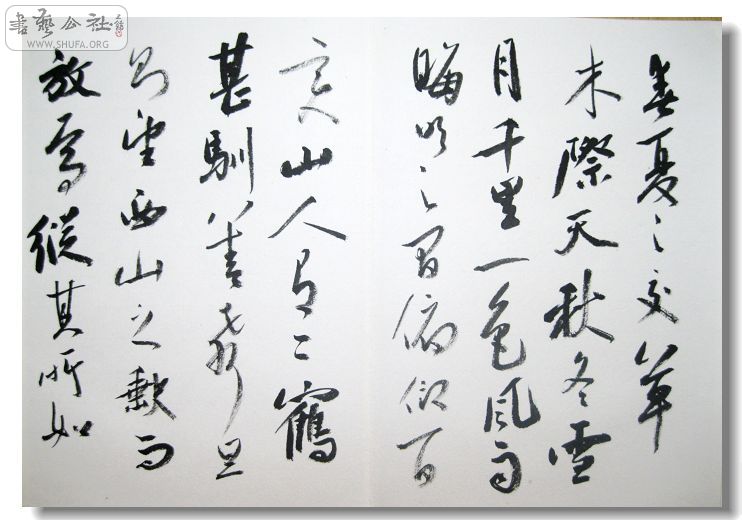 書藝公社
WWW.SHUFA.ORG
春夏之交草
木際天秋冬雪
月千里一色風雨
晦明之間俯仰百
變山人有二鶴
甚馴而善飛旦
則望西山之缺而
放焉縱其所如